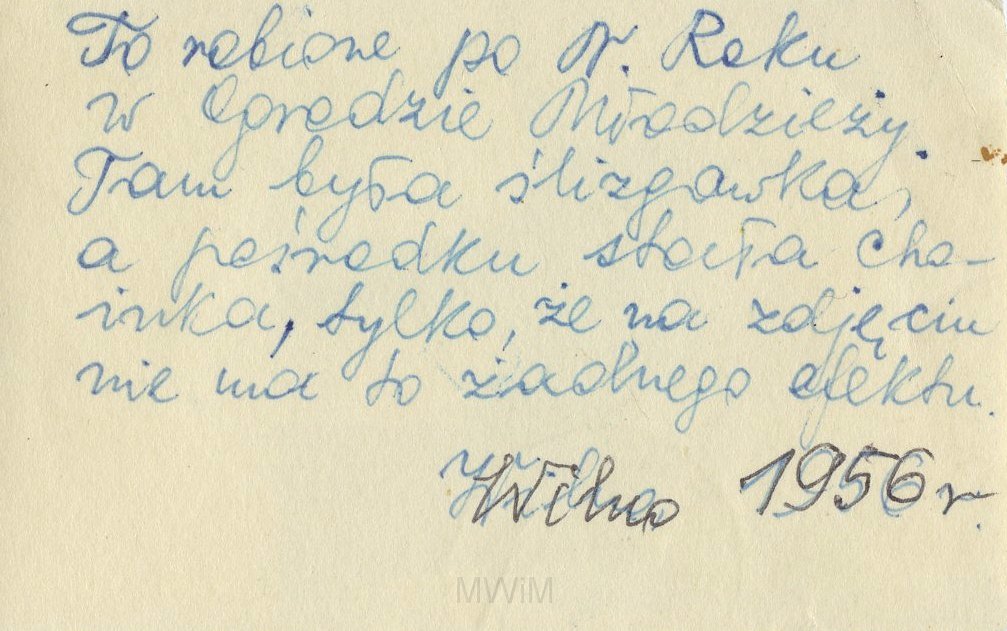 To robione po N. Roku
w Ogrodzie Młodzieży.
Tam była ślizgawka,
a pośrodku stała cho-
inka, tylko, że na zdjęciu
nie ma to żadnego efektu.
Wilno 1956 r.
MWiM